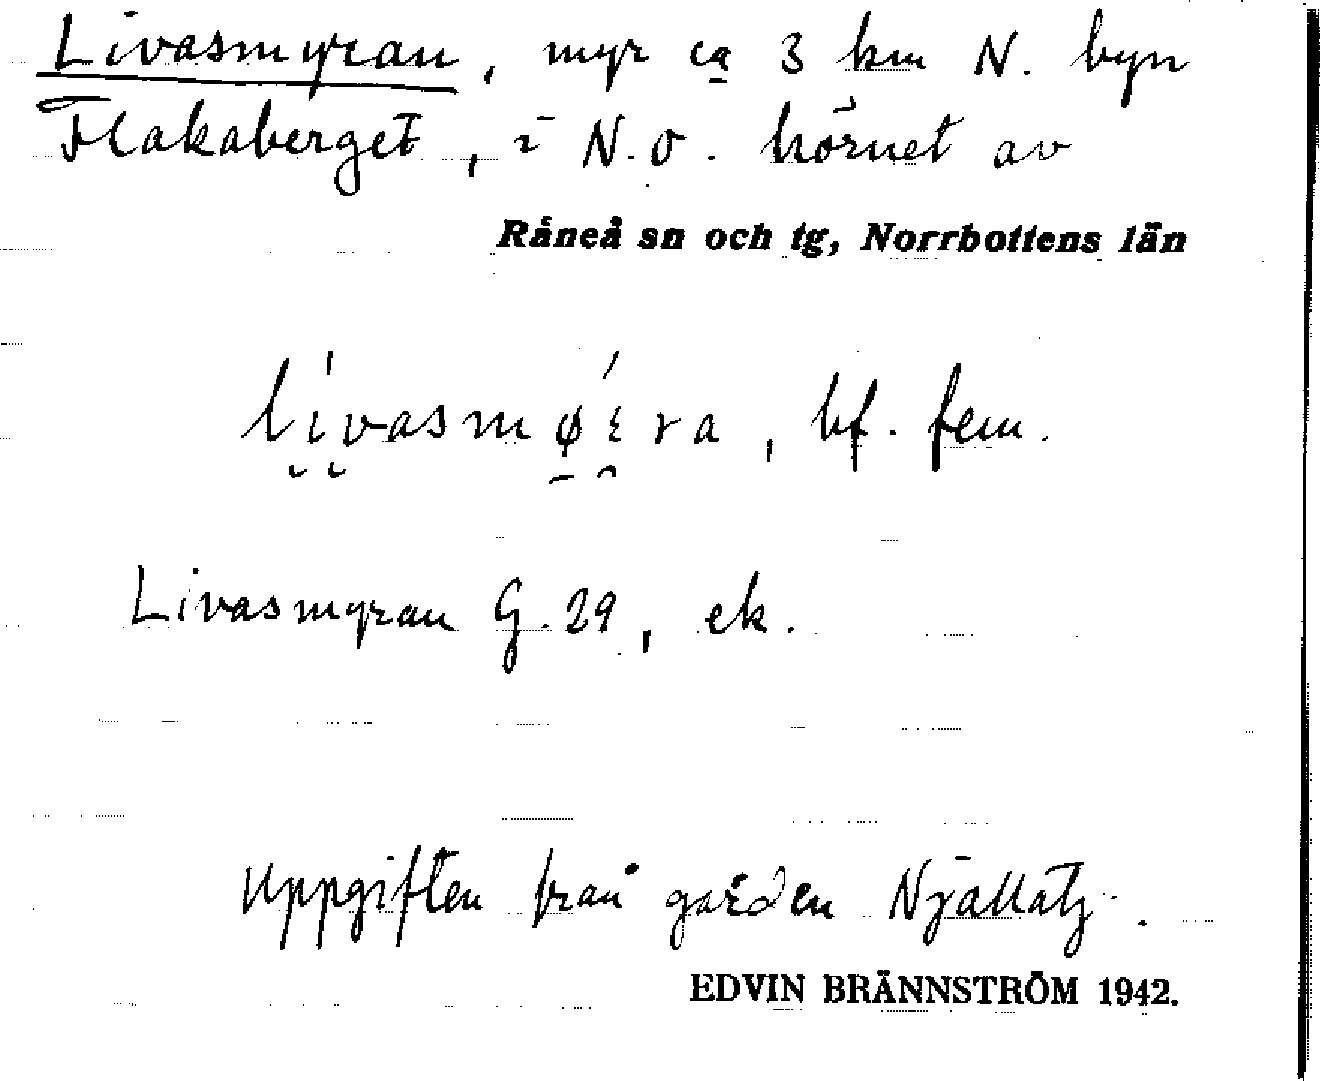 Livasmyran, myr ca 3 km N. byn
Flakaberget, i N.O. hörnet av
Råneå sn och tg, Norrbottens län
bf. fem.
Livasmyran G. 29, ek.
Uppgiften från gården Njallatj.
EDVIN BRÄNNSTRÖM 1942.